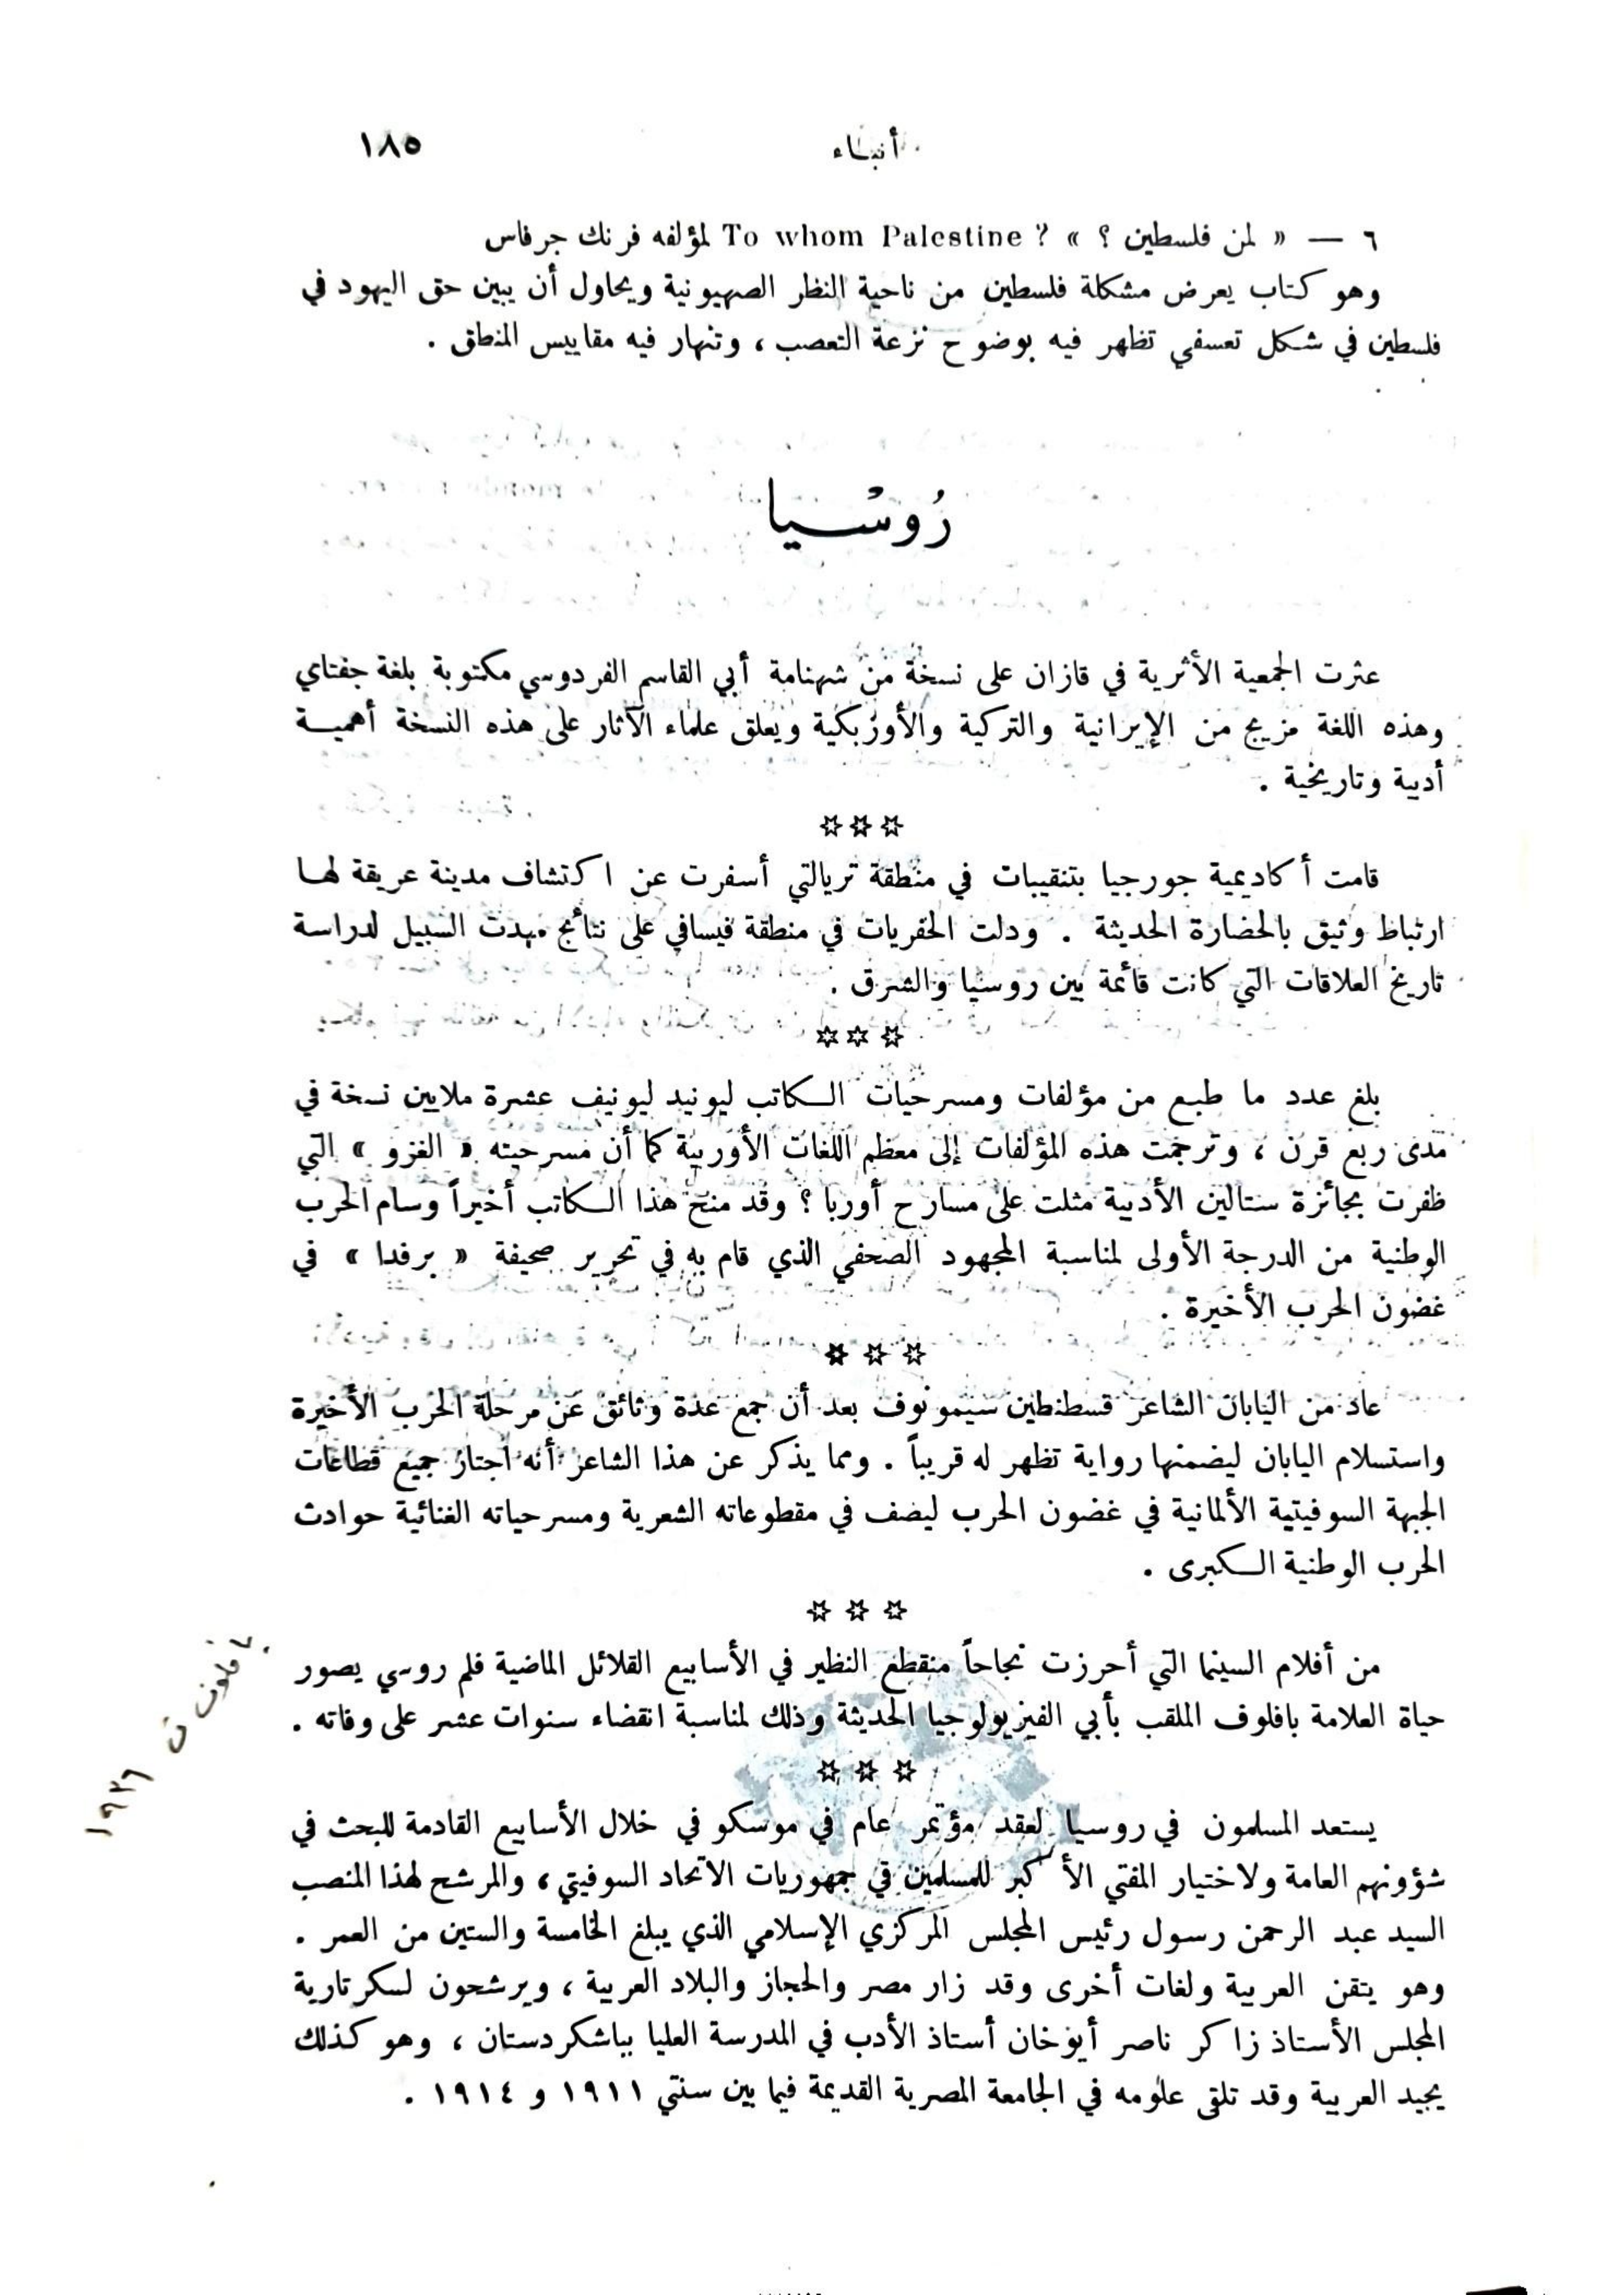 أنباء ١٨٥
٦ — « لمن فلسطين ؟ » To whom Palestine ? لمؤلفه فرنك جرفاس
وهو كتاب يعرض مشكلة فلسطين من ناحية النظر الصهيونية ويحاول أن يبين حق اليهود في
فلسطين في شكل تعسفي تظهر فيه بوضوح نزعة التعصب ، وتنهار فيه مقاييس المنطق .
رُوسْيا
عثرت الجمعية الأثرية في قازان على نسخة من شهنامة أبي القاسم الفردوسي مكتوبة بلغة جفتاي
وهذه اللغة مزيج من الإيرانية والتركية والأوزبكية ويعلق علماء الآثار على هذه النسخة أهمية
أدبية وتاريخية .
✡✡✡
قامت أكاديمية جورجيا بتنقيبات في منطقة تريالتي أسفرت عن اكتشاف مدينة عريقة لها
ارتباط وثيق بالحضارة الحديثة . ودلت الحفريات في منطقة فيسافي على نتائج مهدت السبيل لدراسة
تاريخ العلاقات التي كانت قائمة بين روسيا والشرق .
✡✡✡
بلغ عدد ما طبع من مؤلفات ومسرحيات الكاتب ليونيد ليونيف عشرة ملايين نسخة في
مدى ربع قرن ، وترجمت هذه المؤلفات إلى معظم اللغات الأوربية كما أن مسرحيته « الغزو » التي
ظفرت بجائزة ستالين الأدبية مثلت على مسارح أوربا ؟ وقد منح هذا الكاتب أخيراً وسام الحرب
الوطنية من الدرجة الأولى لمناسبة المجهود الصحفي الذي قام به في تحرير صحيفة « برفدا » في
غضون الحرب الأخيرة .
✡ ✡ ✡
عاد من اليابان الشاعر قسطنطين سيمونوف بعد أن جمع عدة وثائق عن مرحلة الحرب الأخيرة
واستسلام اليابان ليضمنها رواية تظهر له قريباً . ومما يذكر عن هذا الشاعر أنه اجتاز جميع قطاعات
الجبهة السوفيتية الألمانية في غضون الحرب ليصف في مقطوعاته الشعرية ومسرحياته الغنائية حوادث
الحرب الوطنية الكبرى .
✡ ✡ ✡
من أفلام السينما التي أحرزت نجاحاً منقطع النظير في الأسابيع القلائل الماضية فلم روسي يصور
حياة العلامة بافلوف الملقب بأبي الفيزيولوجيا الحديثة وذلك لمناسبة انقضاء سنوات عشر على وفاته .
بافلوف ت ١٩٣٦
✡ ✡ ✡
يستعد المسلمون في روسيا لعقد مؤتمر عام في موسكو في خلال الأسابيع القادمة للبحث في
شؤونهم العامة ولاختيار المفتي الأكبر للمسلمين في جمهوريات الاتحاد السوفيتي ، والمرشح لهذا المنصب
السيد عبد الرحمن رسول رئيس المجلس المركزي الإسلامي الذي يبلغ الخامسة والستين من العمر .
وهو يتقن العربية ولغات أخرى وقد زار مصر والحجاز والبلاد العربية ، ويرشحون لسكرتارية
المجلس الأستاذ زاكر ناصر أيوخان أستاذ الأدب في المدرسة العليا بباشكردستان ، وهو كذلك
يجيد العربية وقد تلقى علومه في الجامعة المصرية القديمة فيما بين سنتي ١٩١١ و ١٩١٤ .